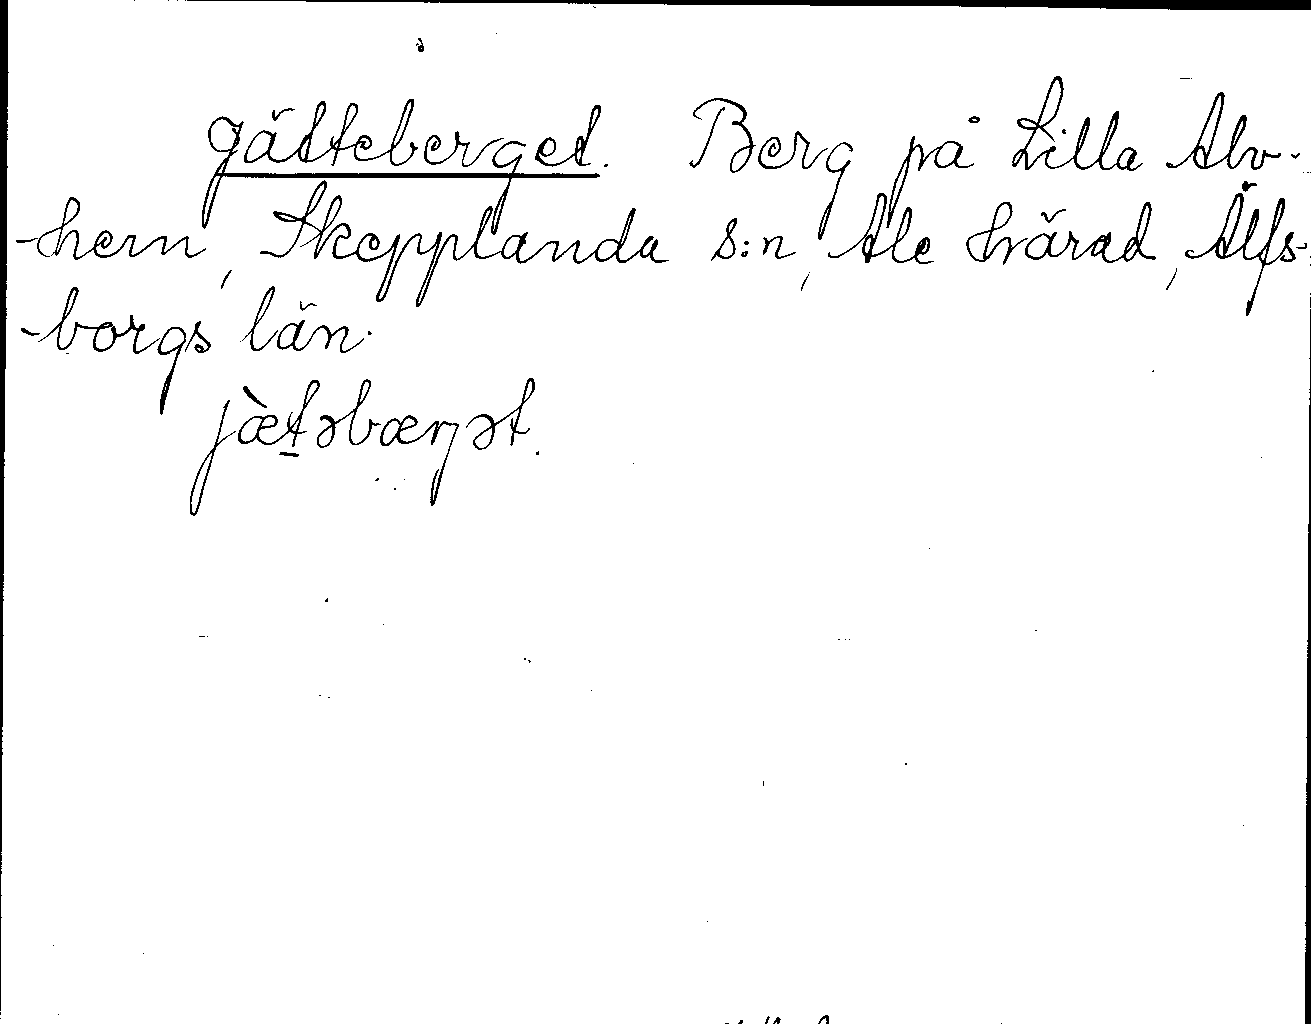 Jätteberget. Berg på Lilla Alv-
-hem, Skepplanda s:n, Ale härad, Älfs-
-borgs län.
jætəbærjət.